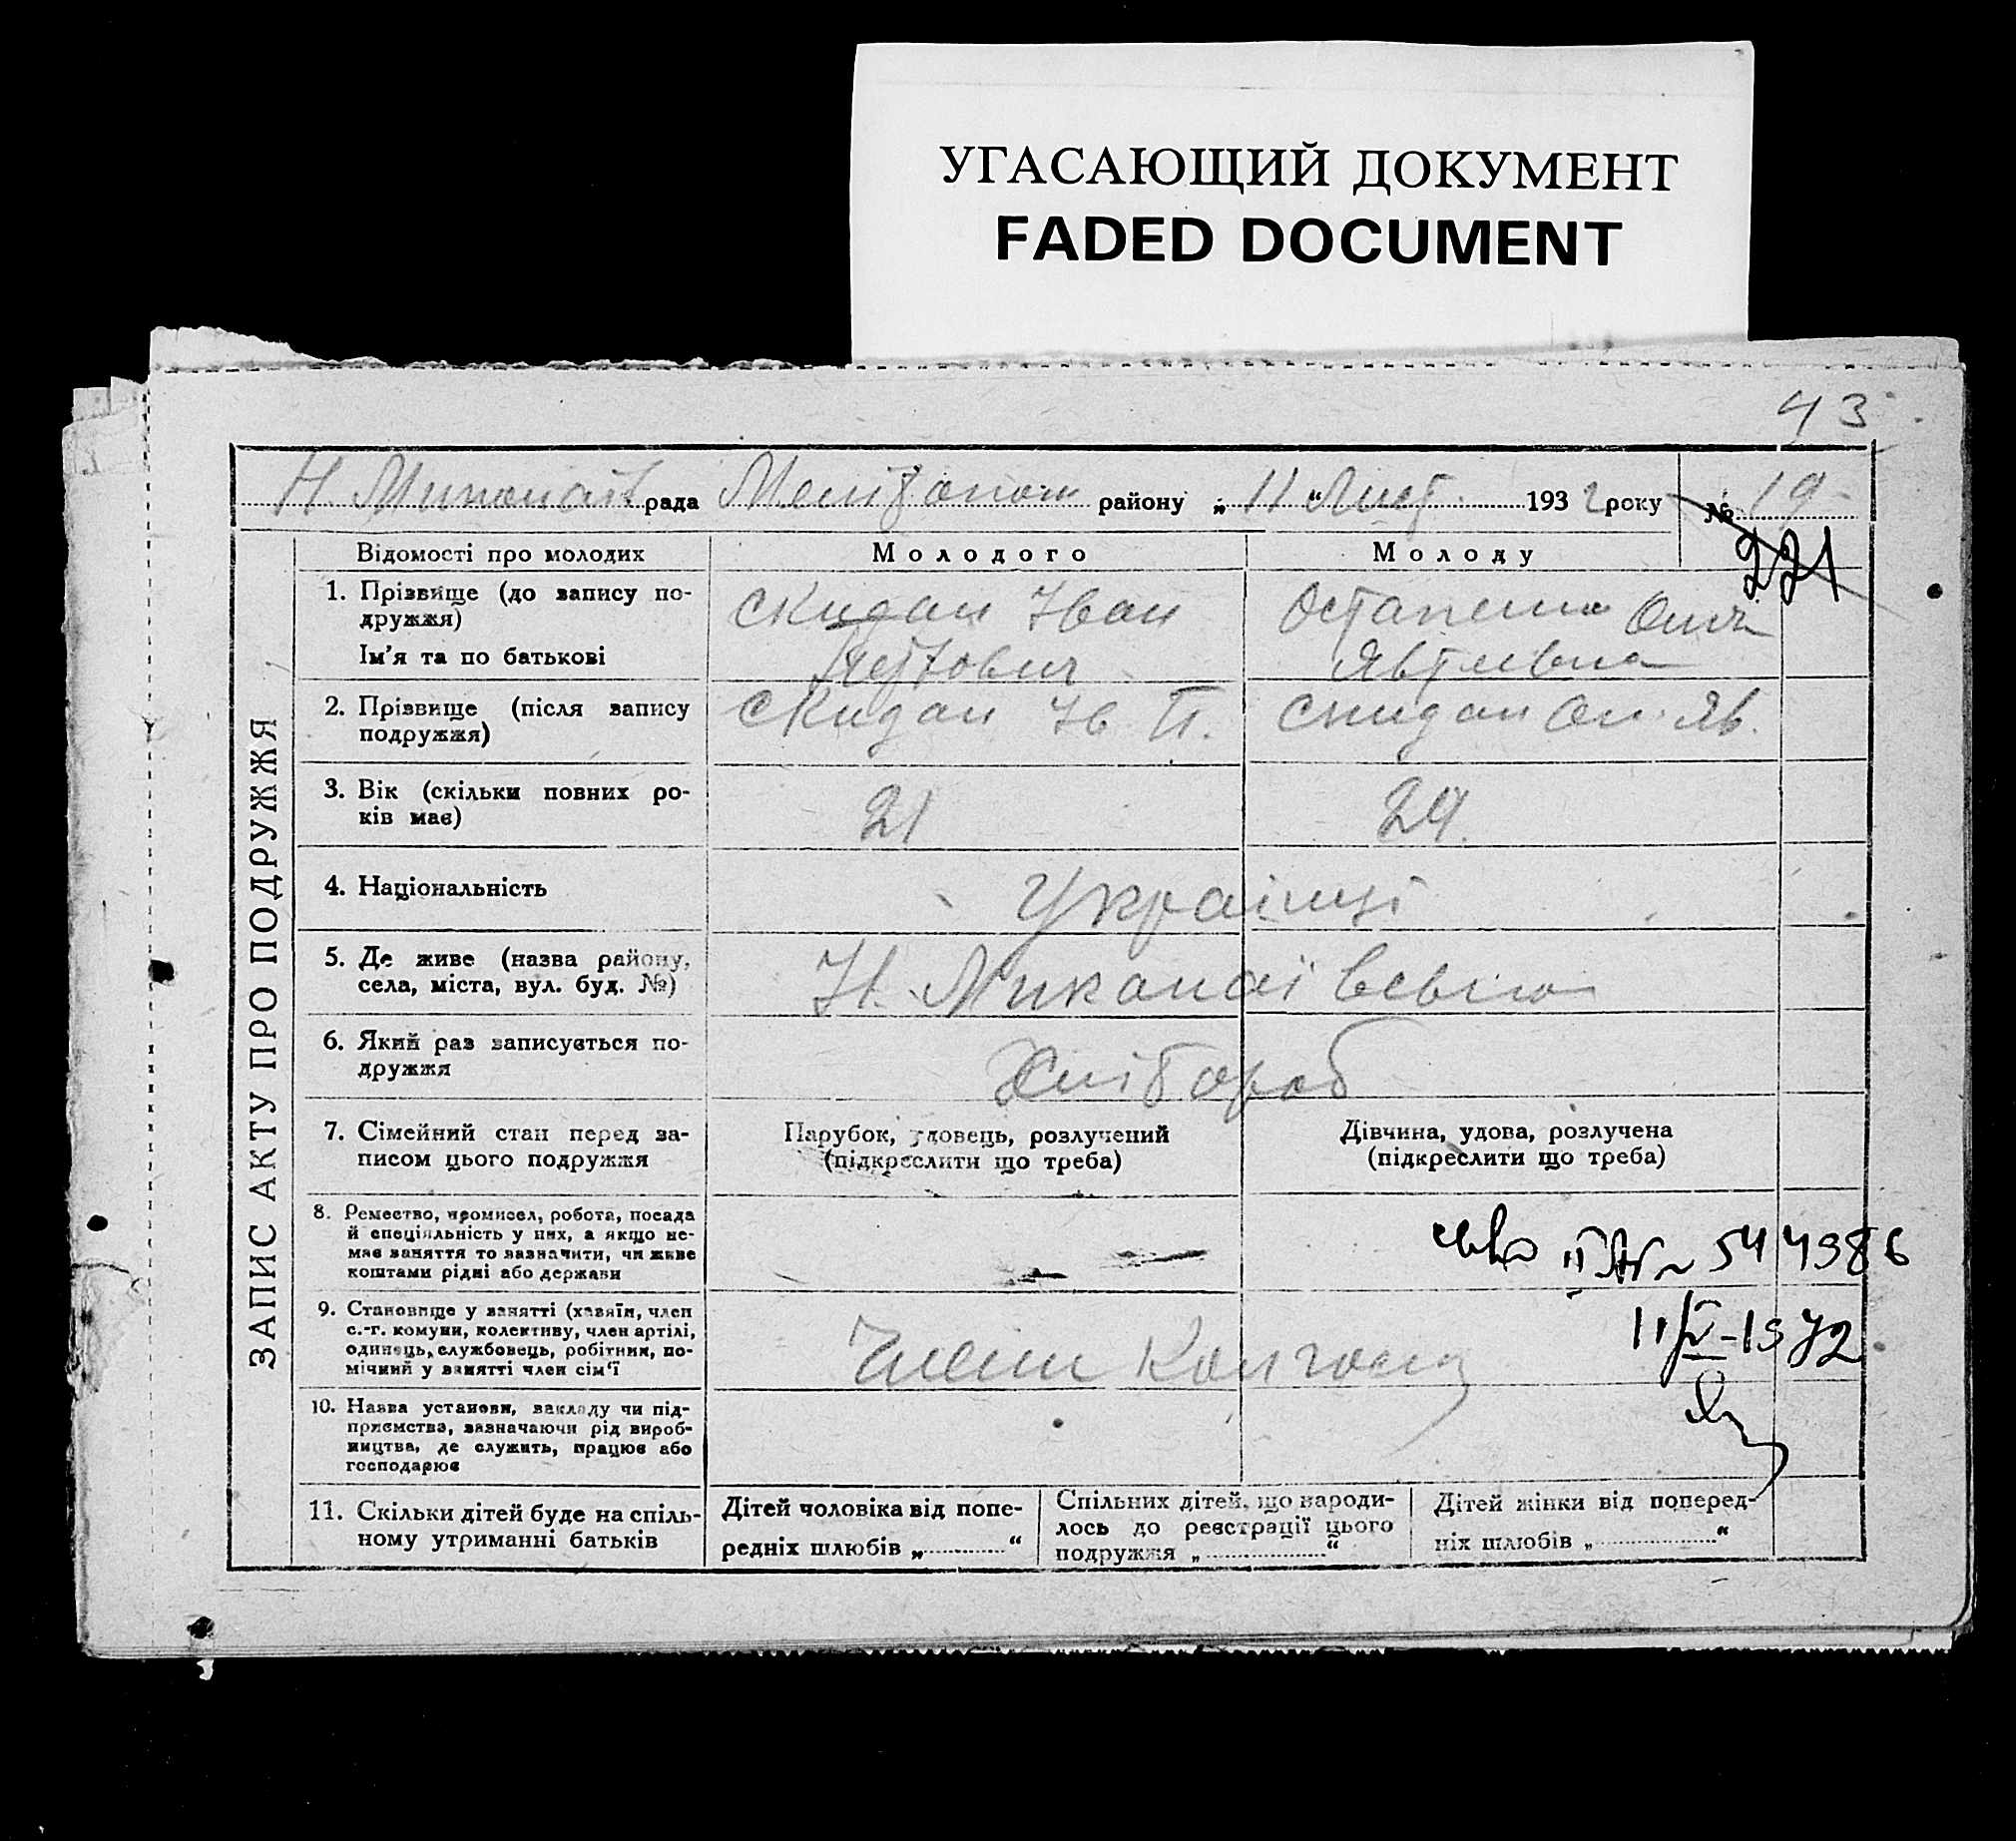 УГАСАЮЩИЙ ДОКУМЕНТ
FADED DOCUMENT
43
Н. Миколаїв рада Мелітопол району „ 11 " Лист. 1932 року № 19
221
ЗАПИС АКТУ ПРО ПОДРУЖЖЯ
Відомості про молодих Молодого Молоду
1. Прізвище (до запису по-
дружжя)
Ім'я та по батькові
Скидан Іван
Петрович
Остапенко
Явтлівна
2. Прізвище (після запису
подружжя)
Скидан Ів П.
Скидан Ол. Яв.
3. Вік (скільки повних ро-
ків має)
21
24.
4. Національність
Українці
5. Де живе (назва району,
села, міста, вул. буд. №)
Н. Миколаї
6. Який раз записується по-
дружжя
Хлібороб
7. Сімейний стан перед за-
писом цього подружжя
Парубок, удовець, розлучений
(підкреслити що треба)
Дівчина, удова, розлучена
(підкреслити що треба)
8. Ремество, промисел, робота, посада
й спеціяльність у них, а якщо не-
має заняття то зазначити, чи живе
коштами рідні або держави
544986
11/V-1972
9. Становище у занятті (хазяїн, член
с.-г. комуни, колективу, член артілі,
одинець, службовець, робітник, по-
мічний у занятті член сім'ї
Члени Колгоспу
10. Назва установи, закладу чи під-
приємства, зазначаючи рід вироб-
ництва, де служить, працює або
господарює
11. Скільки дітей буде на спіль-
ному утриманні батьків
Дітей чоловіка від попе-
редніх шлюбів „ "
Спільних дітей, що народи-
лось до реєстрації цього
подружжя „ "
Дітей жінки від поперед-
ніх шлюбів „ "